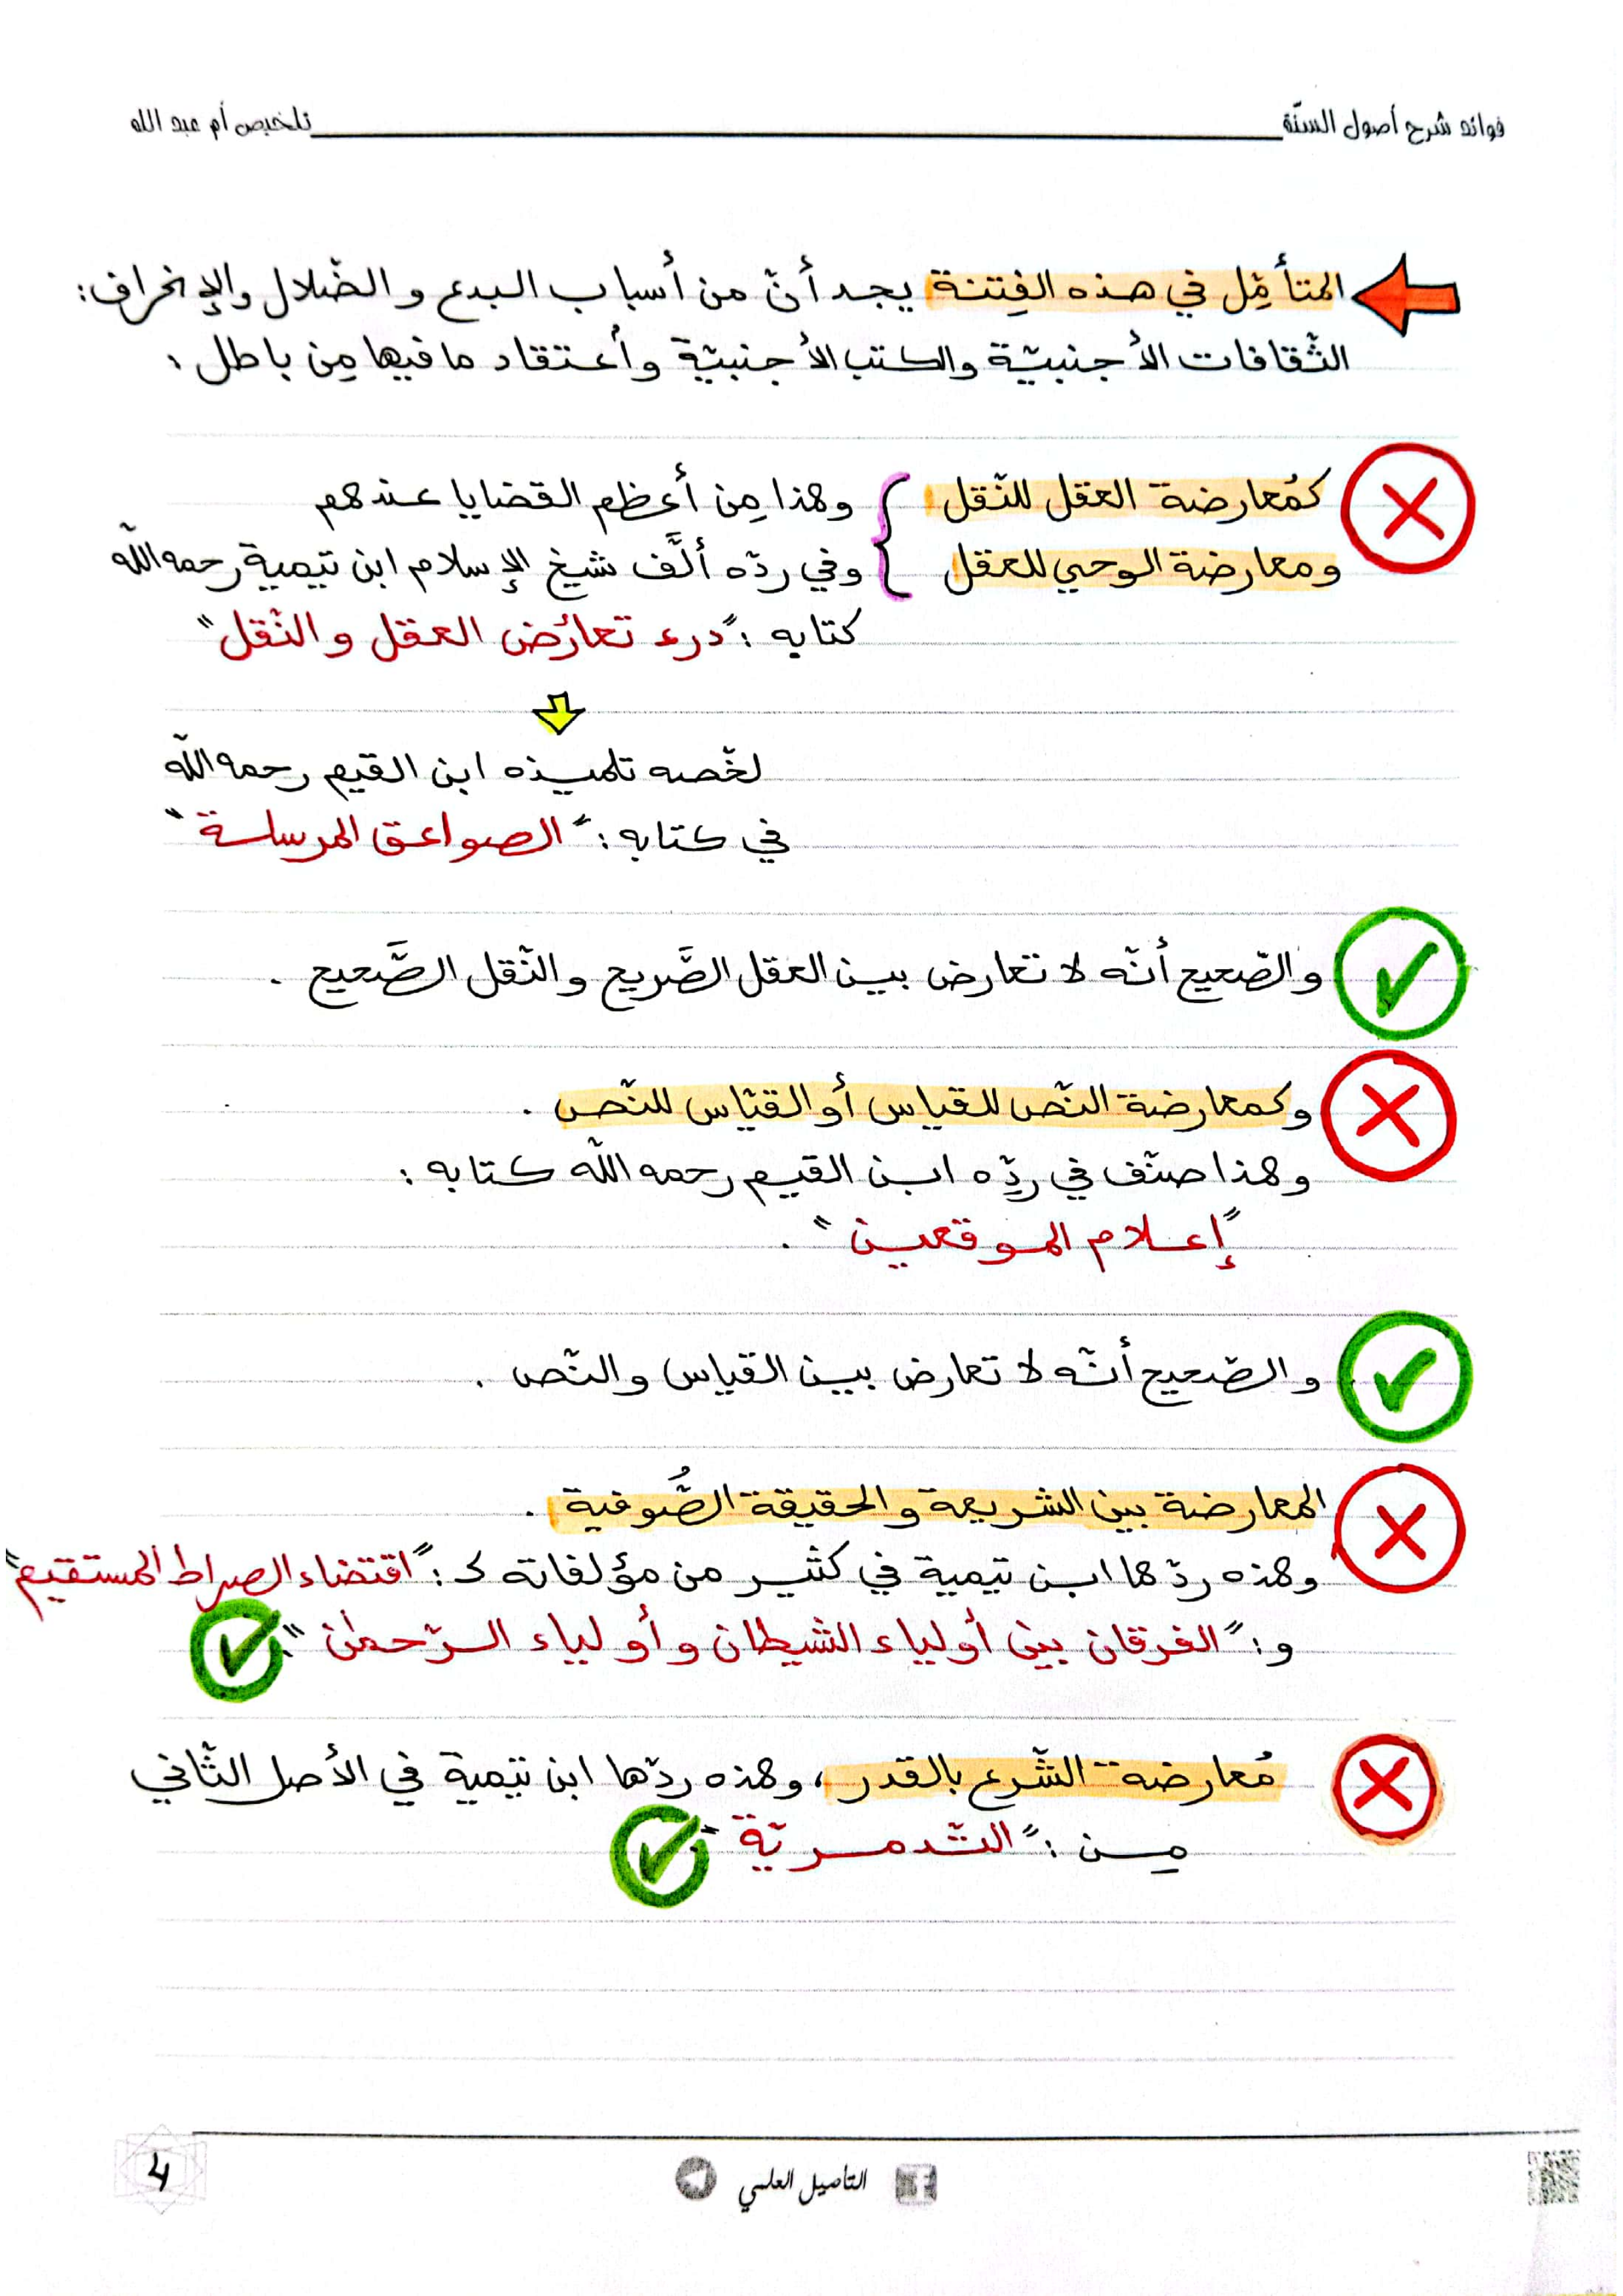 فوائد شرح أصول السنّة
تلخيص أم عبد الله
المتأمِّل في هذه الفِتنة يجد أنّ من أسباب البدع و الضّلال والإنحراف:
الثّقافات الأجنبيّة والكتب الأجنبيّة وأعتقاد ما فيها مِن باطل:
كمُعارضة العقل للنّقل
ومعارضة الوحي للعقل
وهذا مِن أعظم القضايا عندهم
وفي ردّه ألَّف شيخ الإسلام ابن تيمية رحمه اللّه
كتابه: "درء تعارُض العقل والنّقل"
لخّصه تلميذه ابن القيم رحمه اللّه
في كتابه: "الصواعق المرسلة"
والصّحيح أنّه لا تعارض بين العقل الصَّريح والنّقل الصَّحيح .
وكمعارضة النّص للقياس أو القيّاس للنّص .
وهذا صنّف في ردِّه ابن القيم رحمه اللّه كتابه:
"إعلام الموقعين" .
والصّحيح أنّه لا تعارض بين القياس والنّص .
المعارضة بين الشريعة والحقيقة الصُّوفية .
وهذه ردّها ابن تيمية في كثير من مؤلفاته ك: "اقتضاء الصراط المستقيم"
و: "الفرقان بين أولياء الشيطان وأولياء الرّحمٰن".
مُعارضة الشّرع بالقدر، وهذه ردّها ابن تيمية في الأصل الثّاني
مِن: "التّدمريّة"
التأصيل العلمي
4